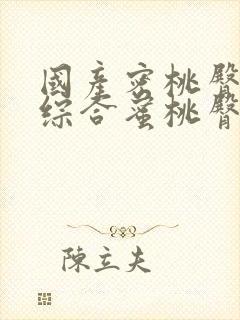 國產蜜桃臀
綜合蜜桃臀
陳立夫